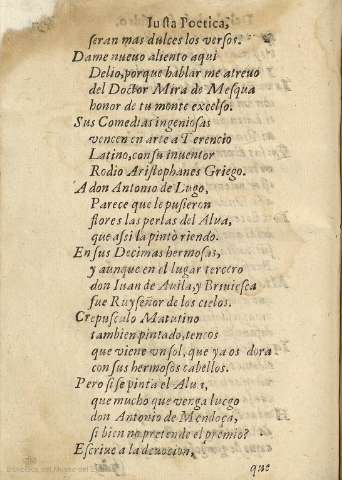 Iusta Poetica,
seran mas dulces los versos.
Dame nueuo aliento aqui
Delio, porque hablar me atreuo
del Doctor Mira de Mesqua
honor de tu monte excelso.
Sus Comedias ingeniosas
vencen en arte a Terencio
Latino, con su inuentor
Rodio Aristophanes Griego.
A don Antonio de Lugo,
Parece que le pusieron
flores las perlas del Alua,
que assi la pintò riendo.
En sus Decimas hermosas,
y aunque en el lugar tercero
don Iuan de Auila, y Briuiesca
fue Ruyseñor de los cielos.
Crepusculo Matutino
tambien pintado, teneos
que viene vn sol, que ya os dora
con sus hermosos cabellos.
Pero si se pinta el Alua,
que mucho que venga luego
don Antonio de Mendoça,
si bien no pretende el premio?
Escriue a la deuocion,
que